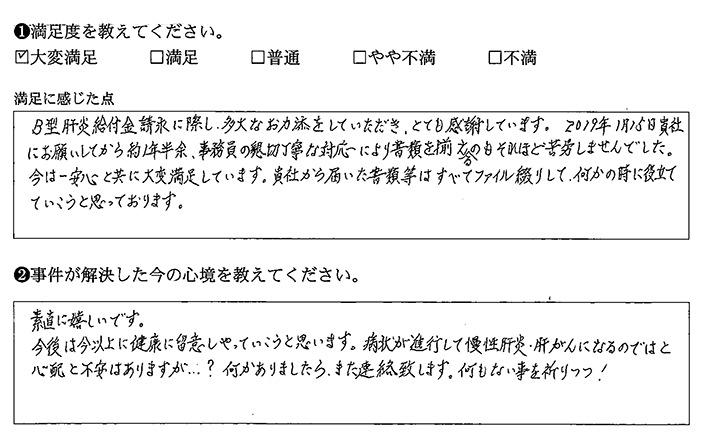 ❶満足度を教えてください。
☑大変満足 □満足 □普通 □やや不満 □不満
満足に感じた点
B型肝炎給付金請求に際し、多大なお力添をしていただき、とても感謝しています。2019年1月15日貴社
にお願いしてから約1年半余、事務員の懇切丁寧な対応により書類を揃えるのもそれほど苦労しませんでした。
今は一安心と共に大変満足しています。貴社から届いた書類等はすべてファイル綴りして、何かの時に役立て
ていこうと思っております。
❷事件が解決した今の心境を教えてください。
素直に嬉しいです。
今後は今以上に健康に留意しやっていこうと思います。病状が進行して慢性肝炎・肝がんになるのではと
心配と不安はありますが…?何かありましたら、また連絡致します。何もない事を祈りつつ!